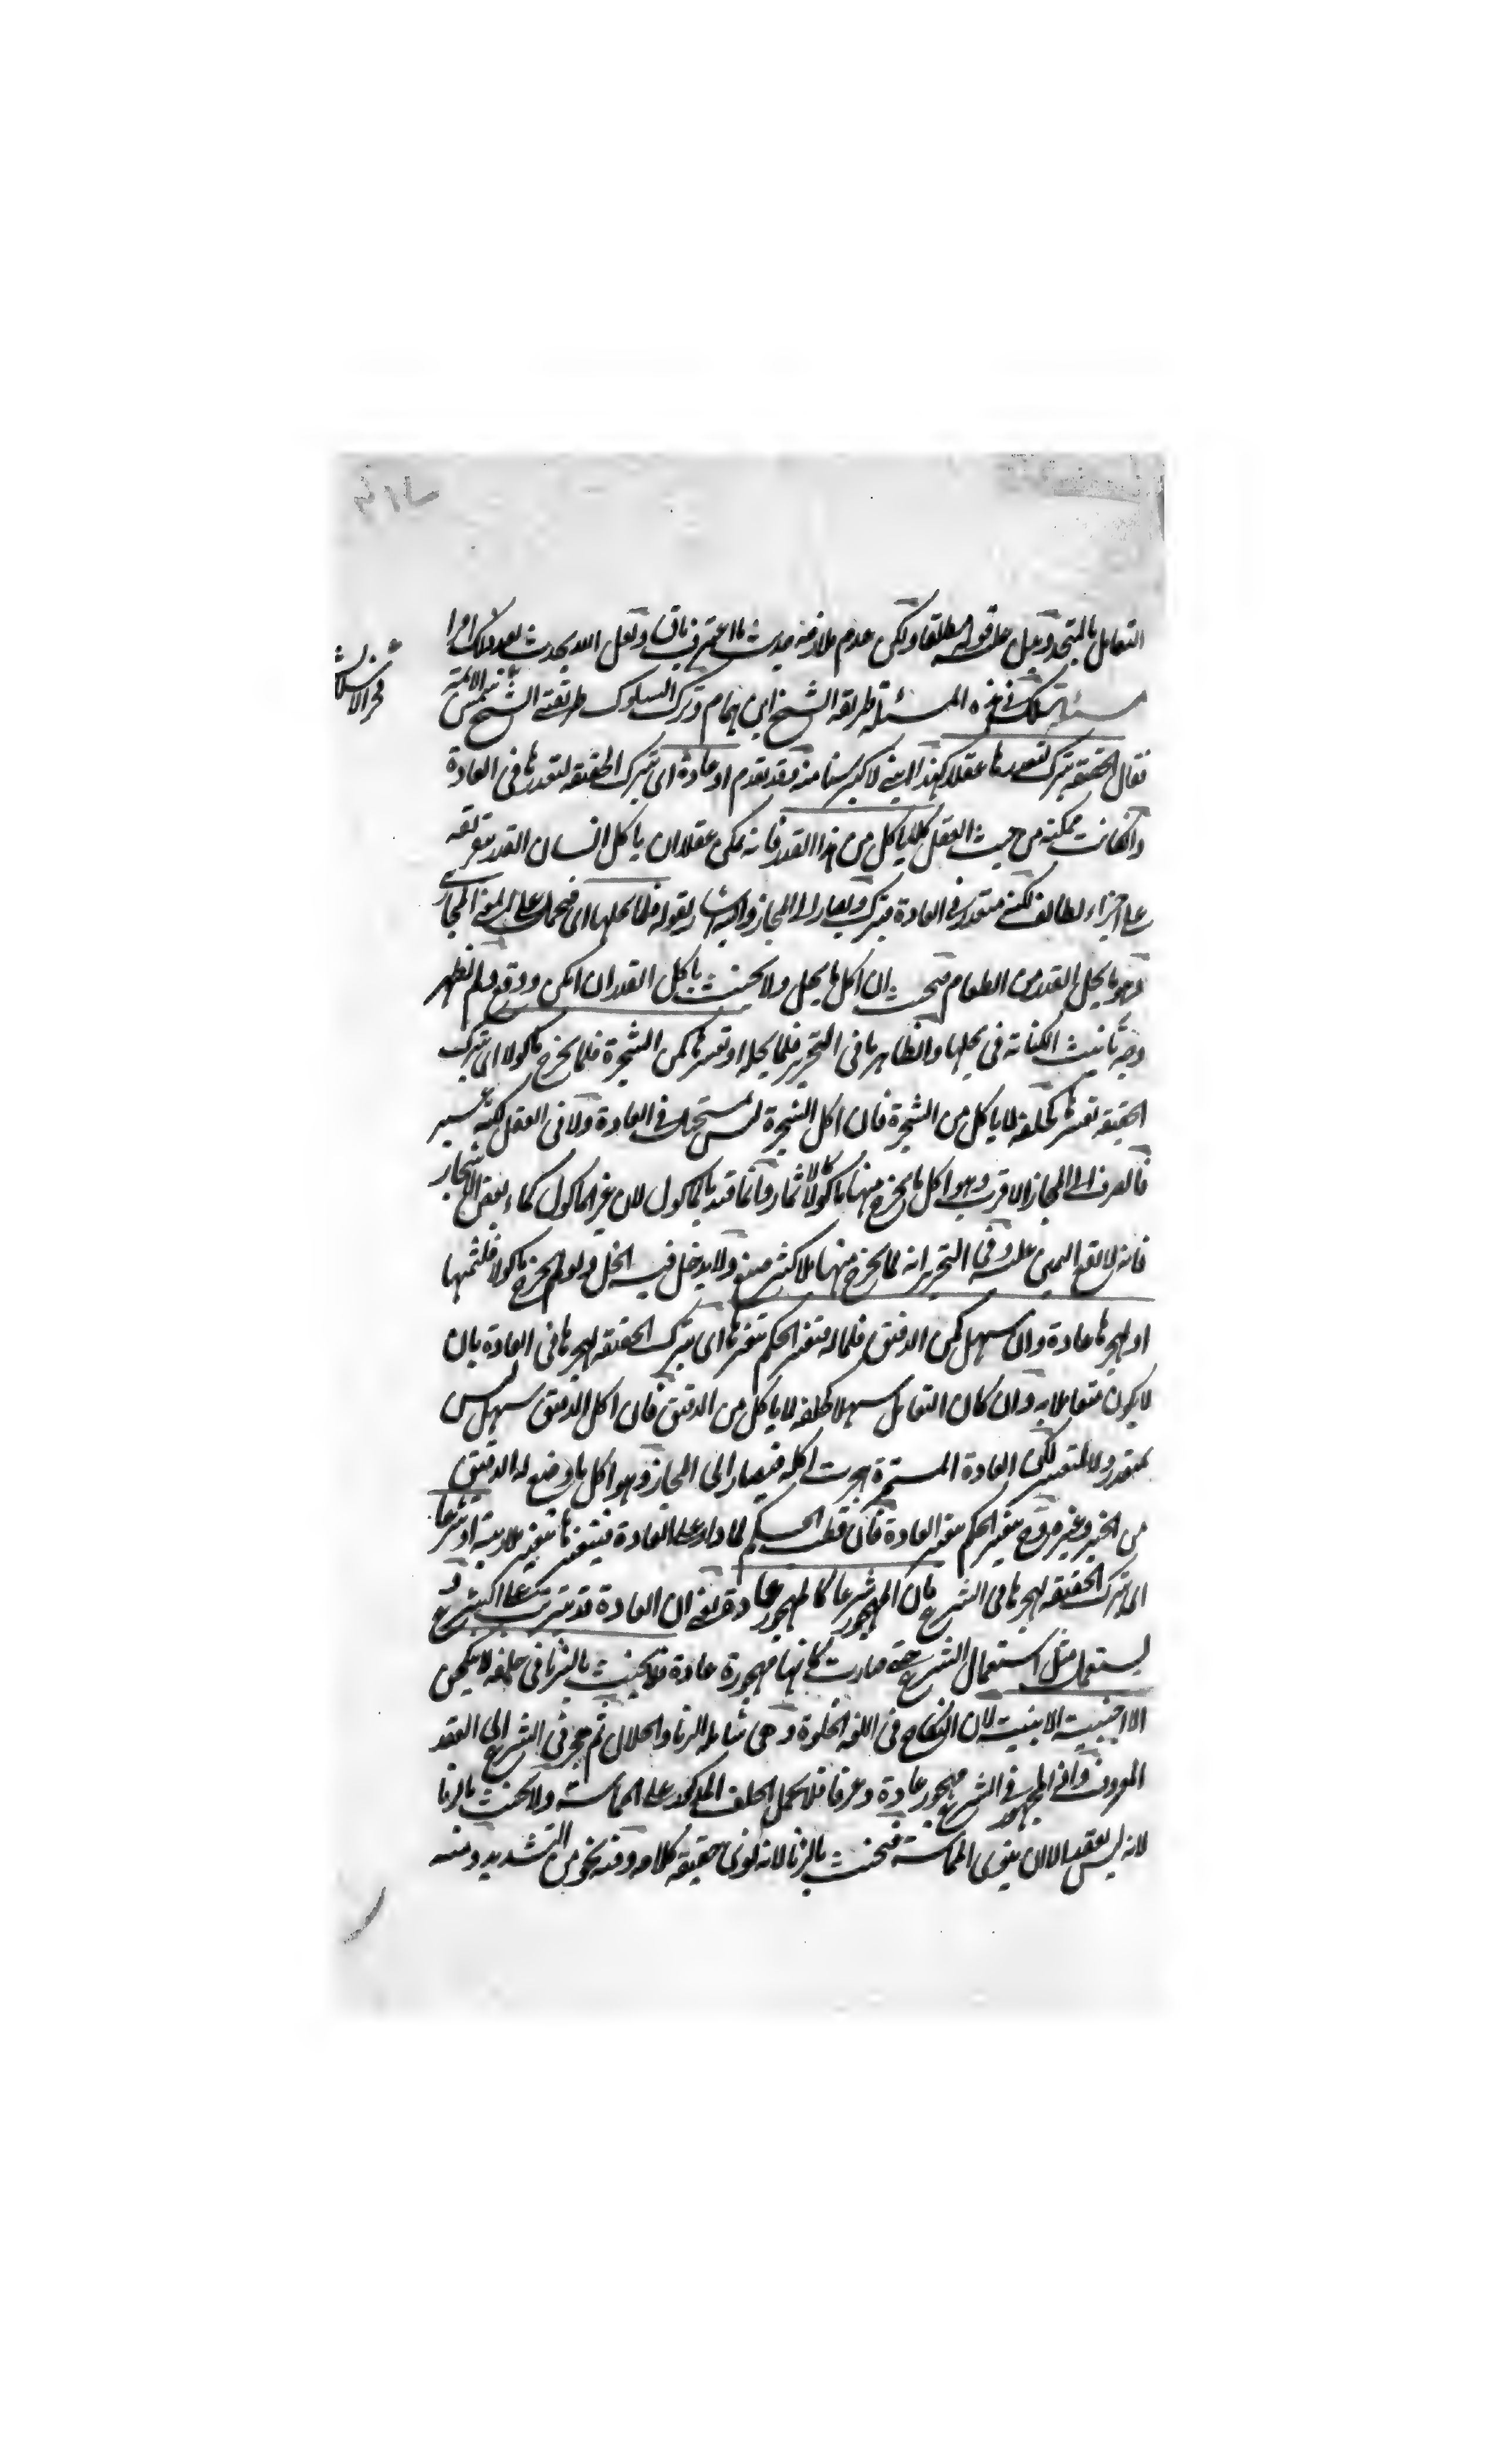 التعامل بالمتجدد وقيل حلف قوله مطلقا ولكن عدم ملازمة حديث ما اعترف باق ولعل الله يحدث بعد ذلك امرا
مسئلة سلك في هذه المسئلة طريقة الشيخ ابن همام وترك السلوك طريقتي الشيخ شمس الائمة
فخر الاسلام
فقال الحقيقة تترك لتعذرها عقلا كهذا ابني لاكبر سنا منه وقد تقدم او عادة اى تترك الحقيقة لتعذرها في العادة
وانكانت ممكنة من حيث العقل كلا ياكل من هذا القدر فانه يمكن عقلا ان ياكل انسان القدر بتفرقه
على اجزاء لطائف لكنه متعذر في العادة فيترك ويصار الى المجاز واليه اشار بقوله فلما يحلها اى فيحمل على المعنى المجازى
وهو ما يحل القدر من الطعام فيحنث ان اكل ما يحل ولا يحنث باكل القدر ان امكن ووقع ولم يظهر
وجه تانيث الكناية في يحلها والظاهر ما في التحرير فلما يحله او تعسرها كمن الشجرة فلما يخرج ماكولا اى تترك
الحقيقة لتعسرها كحلفه لا ياكل من الشجرة فان اكل الشجرة ليس بمستحيل في العادة ولا في العقل لكنه عسير
فالصرف الى المجاز الاقرب وهو اكل ما يخرج منها ماكولا كالاثمار وانما قيد بالماكول لان غير الماكول كماء بعض الاشجار
فانه لا يقع اليمين عليه وفي التحرير انه لما يخرج منها بلا كثير صنع ولا يدخل فيه الخل ولو لم يخرج ماكولا فلثمنها
او لهجرها عادة وان سهل كمن الدقيق فلما له فتغير الحكم بتغيرها اى تترك الحقيقة لهجرها في العادة بان
لا يكون متعاملا به وان كان التعامل سهلا كحلفه لا ياكل من الدقيق فان اكل الدقيق سهل ليس
بمتعذر ولا بمتعسر لكن العادة المستمرة هجرت اكله فيصار الى المجاز وهو اكل ما وضع له الدقيق
من الخبز وغيره وح يتغير الحكم بتغير العادة فان قطب الحكم لما دار على العادة فيتغير بتغيرها ملابسة او شرعا
اى تترك الحقيقة لهجرها في الشرع فان المهجور شرعا كالمهجور عادة يعني ان العادة قد تترتب على الشرع و
يستعمل مثل استعمال الشرع حتى صارت كانها مهجورة عادة فلا يحنث بالزنا في حلفه لا ينكحن
الاجنبية الا بنية لان النكاح في اللغة الخلوة وهى شاملة للزنا والحلال ثم هجر في الشرع الى العقد
المعروف واذ المهجور في الشرع مهجور عادة وعرفا فلا يحمل الحلف المذكور على المماسة ولا يحنث بالزنا
لانه ليس بعقد الا ان ينوى المماسة فيحنث بالزنا لانه نوى حقيقة كلامه وفيه نحو من التشديد ومنه